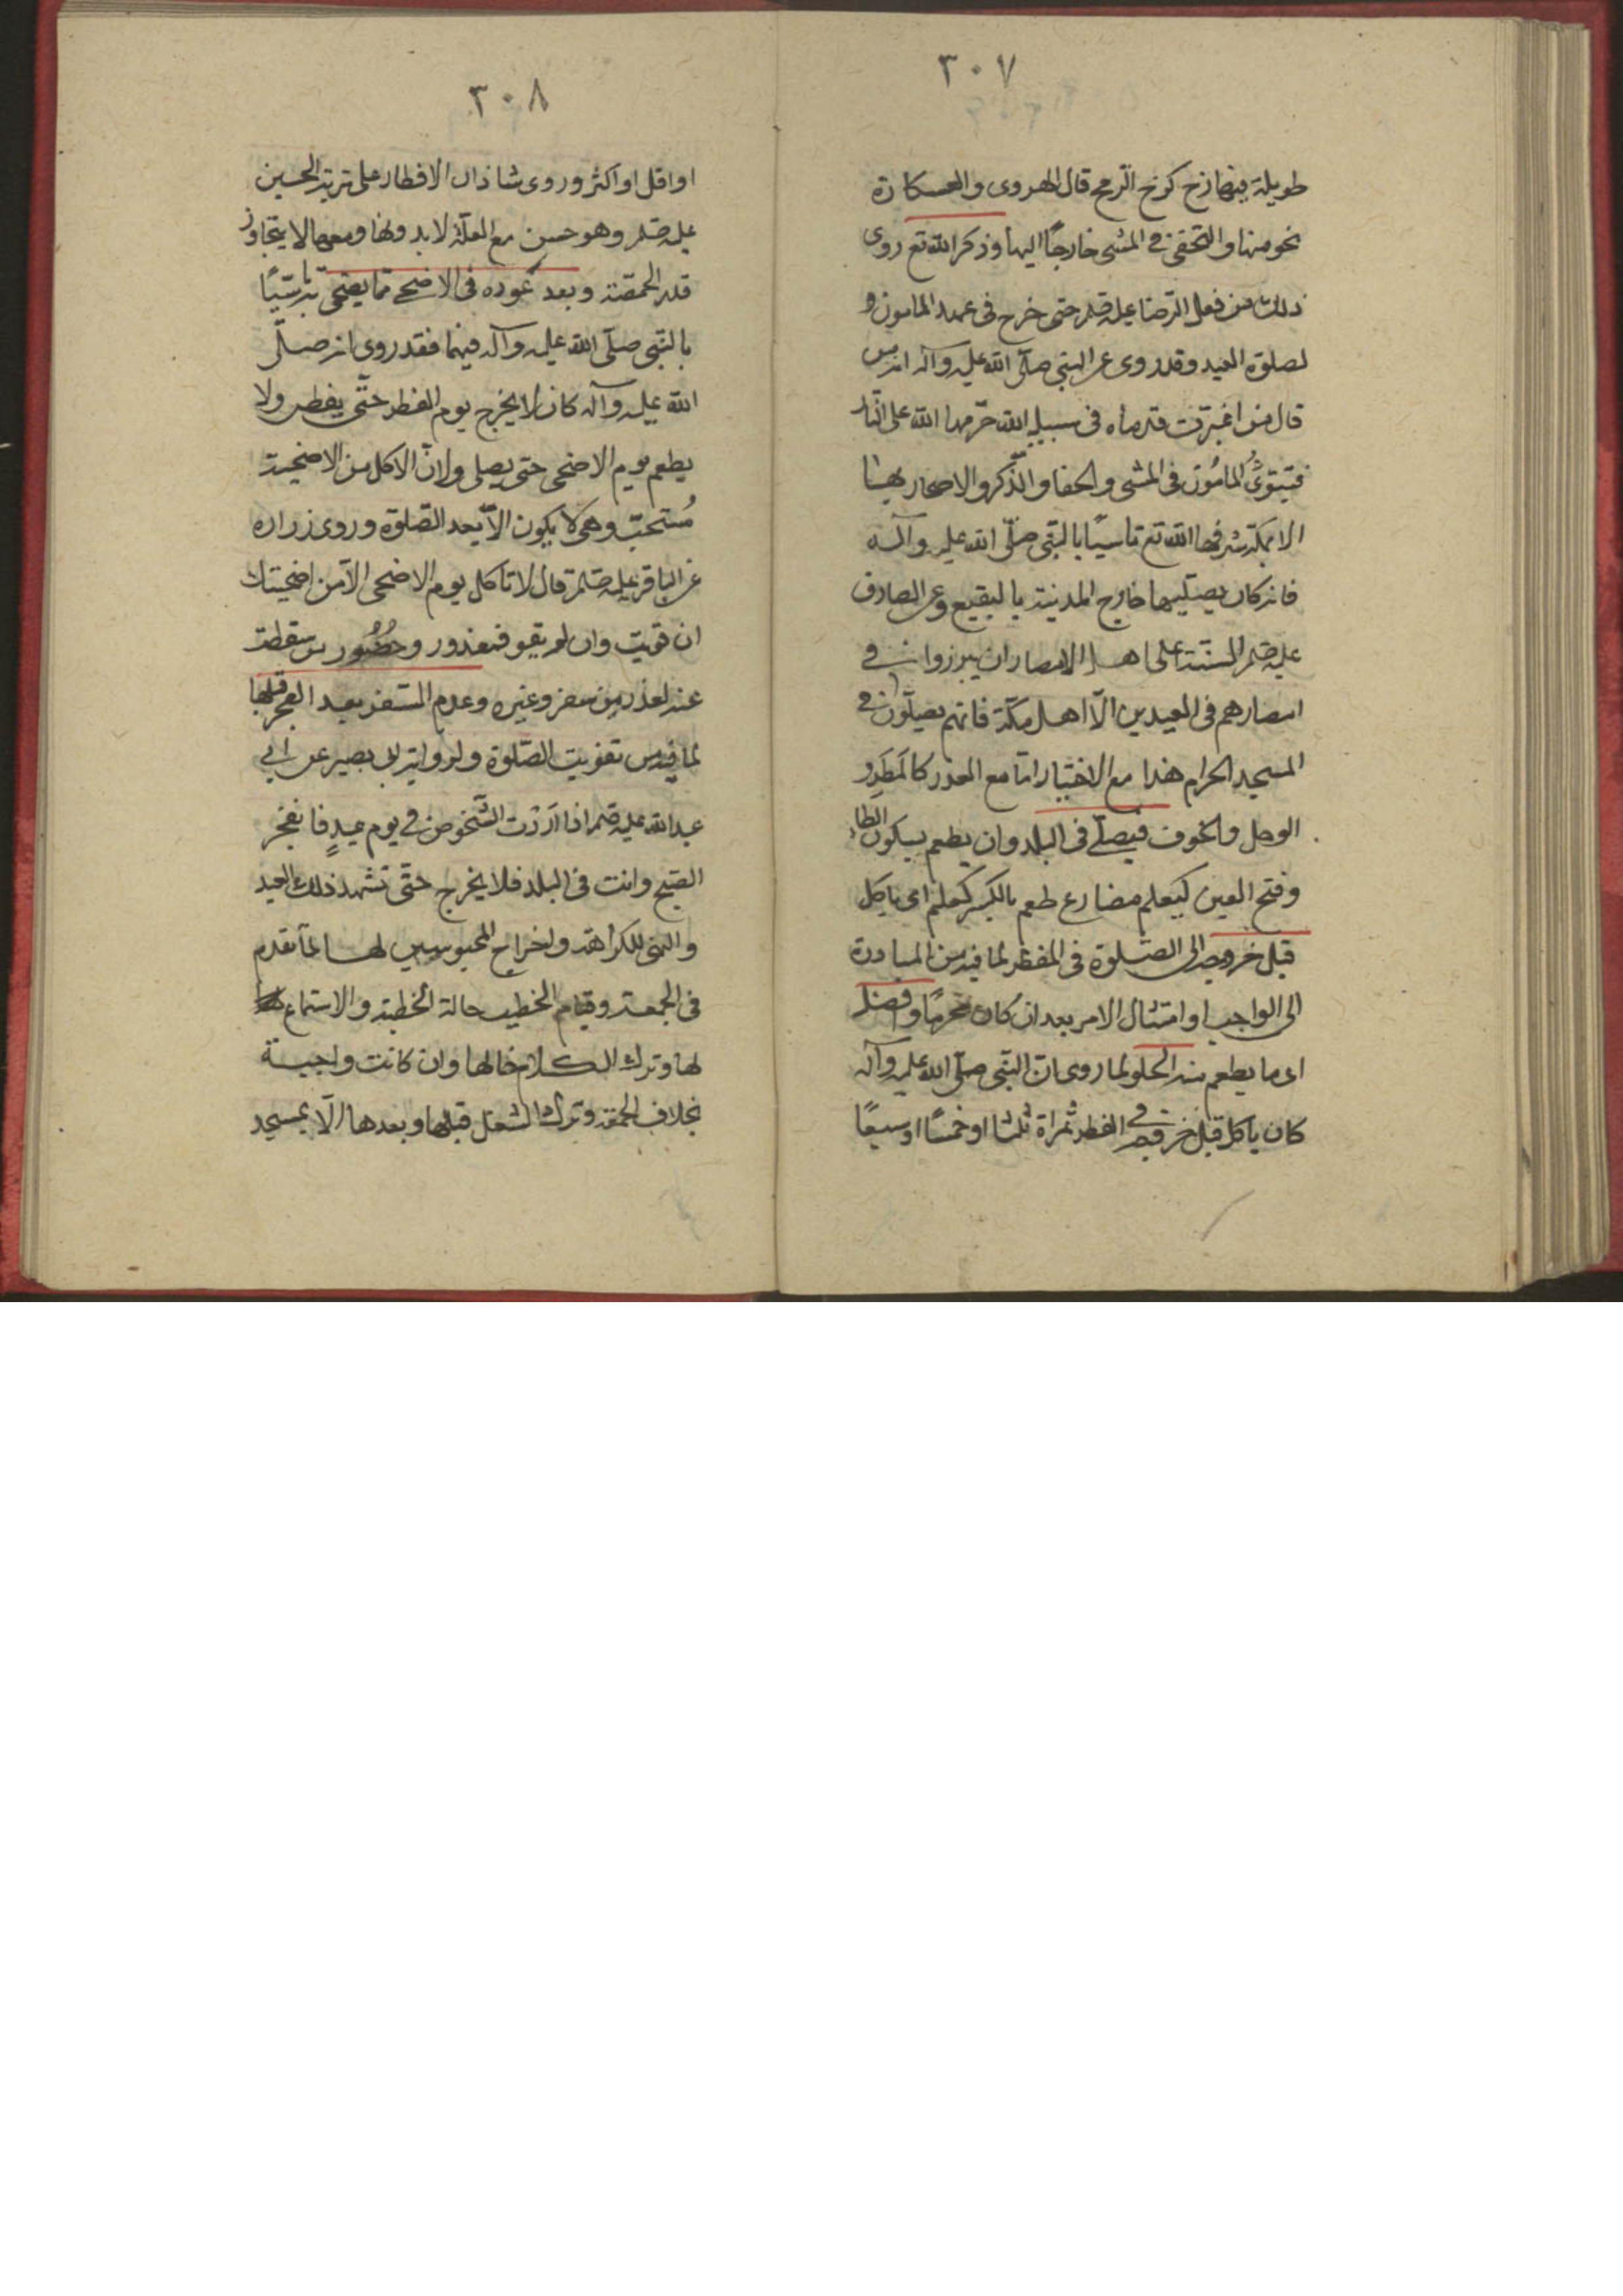 ٣٠٧
طويلة فيها زخ كزخ الرمح قال الهروى والعكازة
نحو منها والتحفى فى المشى خارجًا اليها وذكر الله تع روى
ذلك من فعل الرضا عليه صلم حتى خرج فى عهد المامون
لصلوة العيد وقد روى عن النبى صلى الله عليه وآله انه
قال من اغبرت قدماه فى سبيل الله حرمهما الله على النار
المامون فى المشى والحفا والذكر والاصحار بها
الا بمكة شرفها الله تع تاسيًا بالنبى صلى الله عليه وآله
فانه كان يصليها خارج المدينة بالبقيع وعن الصادق
عليه صلم السنة على اهل الامصار ان يبرزوا من فى
امصارهم فى العيدين الا اهل مكة فانهم يصلون فى
المسجد الحرام هذا مع الاختيار اما مع العذر كالمطر و
الوحل والخوف فيصلى فى البلد وان يطعم بسكون الطاء
وفتح العين كيعلم مضارع طعم بالكسر كعلم اى ياكل
قبل خروجه الى الصلوة فى الفطر لما فيه من المبادرة
الى الواجب او امتثال الامر بعد ان كان محرمًا وافضل
اى ما يطعم منه الحلو لما روى ان النبى صلى الله عليه وآله
كان ياكل قبل خروجه فى الفطر تمراة ثلثا او خمسًا او سبعًا
٣٠٨
او اقل او اكثر وروى شاذا ان الافطار على تربة الحسين
عليه صلم وهو حسن مع العلة لا بدونها ومعها لا يتجاوز
قدر الحمصة وبعد عوده فى الاضحى مما يضحى به تاسيًا
بالنبى صلى الله عليه وآله فيهما فقد روى انه صلى
الله عليه وآله كان لا يخرج يوم الفطر حتى يفطر ولا
يطعم يوم الاضحى حتى يصلى ولان الاكل من الاضحية
مستحب وهى لا يكون الا بعد الصلوة وروى زراره
عن الباقر عليه صلم قال لا تاكل يوم الاضحى الا من اضحيتك
ان قويت وان لم يقو فمعذور وحضور من سقطت
عنه لعذر من سفر وغيره وعدم السفر بعد الفجر قبلها
لما فيه من تفويت الصلوة ولرواية ابى بصير عن ابى
عبد الله عليه صلم اذا اردت الشخوص فى يوم عيد فانفجر
الصبح وانت فى البلد فلا يخرج حتى تشهد ذلك العيد
والنهى للكراهة واخراج المحبوسين لها لما تقدم
فى الجمعة وقيام الخطيب حالة الخطبة والاستماع
لها وترك الكلام خالها وان كانت واجبة
بخلاف الجمعة وترك الشغل قبلها وبعدها الا بمسجد